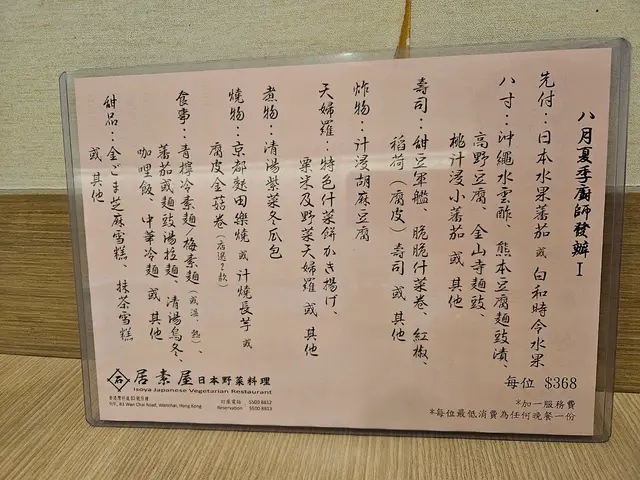 八月夏季廚師發辦 I
先付：日本水果蕃茄 或 白和時令水果
八寸：沖繩水雲酢、熊本豆腐麵豉漬、
高野豆腐、金山寺麵豉、
桃汁浸小蕃茄 或 其他
壽司：甜豆軍艦、脆脆什菜卷、紅椒、
稻荷（腐皮）壽司 或 其他
炸物：汁浸胡麻豆腐
天婦羅：特色什菜餅かき揚げ、
粟米及野菜天婦羅 或 其他
煮物：清湯紫菜冬瓜包
燒物：京都麩田樂燒 或 汁燒長芋 或
腐皮金菇卷（店選2款）
食事：青檸冷素麵/梅素麵（或 溫、熱）、
蕃茄或麵豉湯拉麵、清湯烏冬、
咖哩飯、中華冷麵 或 其他
甜品：金ごま芝麻雪糕、抹茶雪糕
或 其他
每位 $368
*加一服務費
*每位最低消費為任何晚餐一份
居素屋 日本野菜料理
Isoya Japanese Vegetarian Restaurant
83 Wan Chai Road, Wanchai, Hong Kong
訂座電話 5500 8812
Reservation 5500 8813